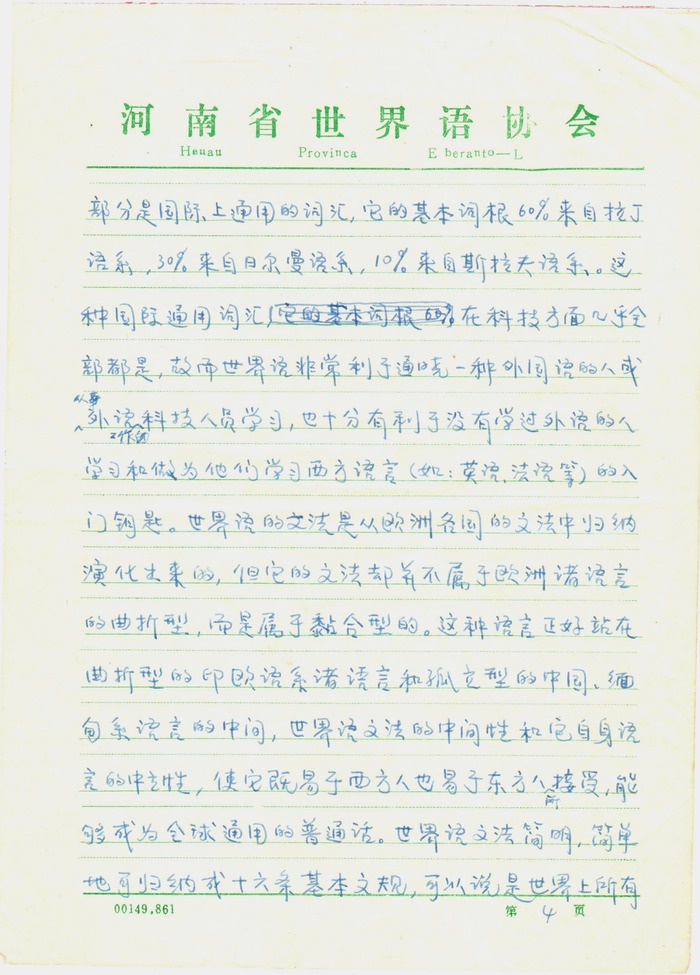 河南省世界语协会
Heuau Provinca Eberanto—L
部分是国际上通用的词汇，它的基本词根60%来自拉丁
语系，30%来自日尔曼语系，10%来自斯拉夫语系。这
种国际通用词汇，它的基本词根60%，在科技方面几乎全
部都是，故而世界语非常利于通晓一种外国语的人或
从事外语工作的科技人员学习，也十分有利于没有学过外语的人
学习和做为他们学习西方语言（如：英语、法语等）的入
门钥匙。世界语的文法是从欧洲各国的文法中归纳
演化出来的，但它的文法却并不属于欧洲诸语言
的曲折型，而是属于黏合型的。这种语言正好站在
曲折型的印欧语系诸语言和孤立型的中国、缅
甸系语言的中间，世界语文法的中间性和它自身语
言的中立性，使它既易于西方人也易于东方人所接受，能
够成为全球通用的普通话。世界语文法简明，简单
地可归纳成十六条基本文规，可以说是世界上所有
00149.861 第 4 页